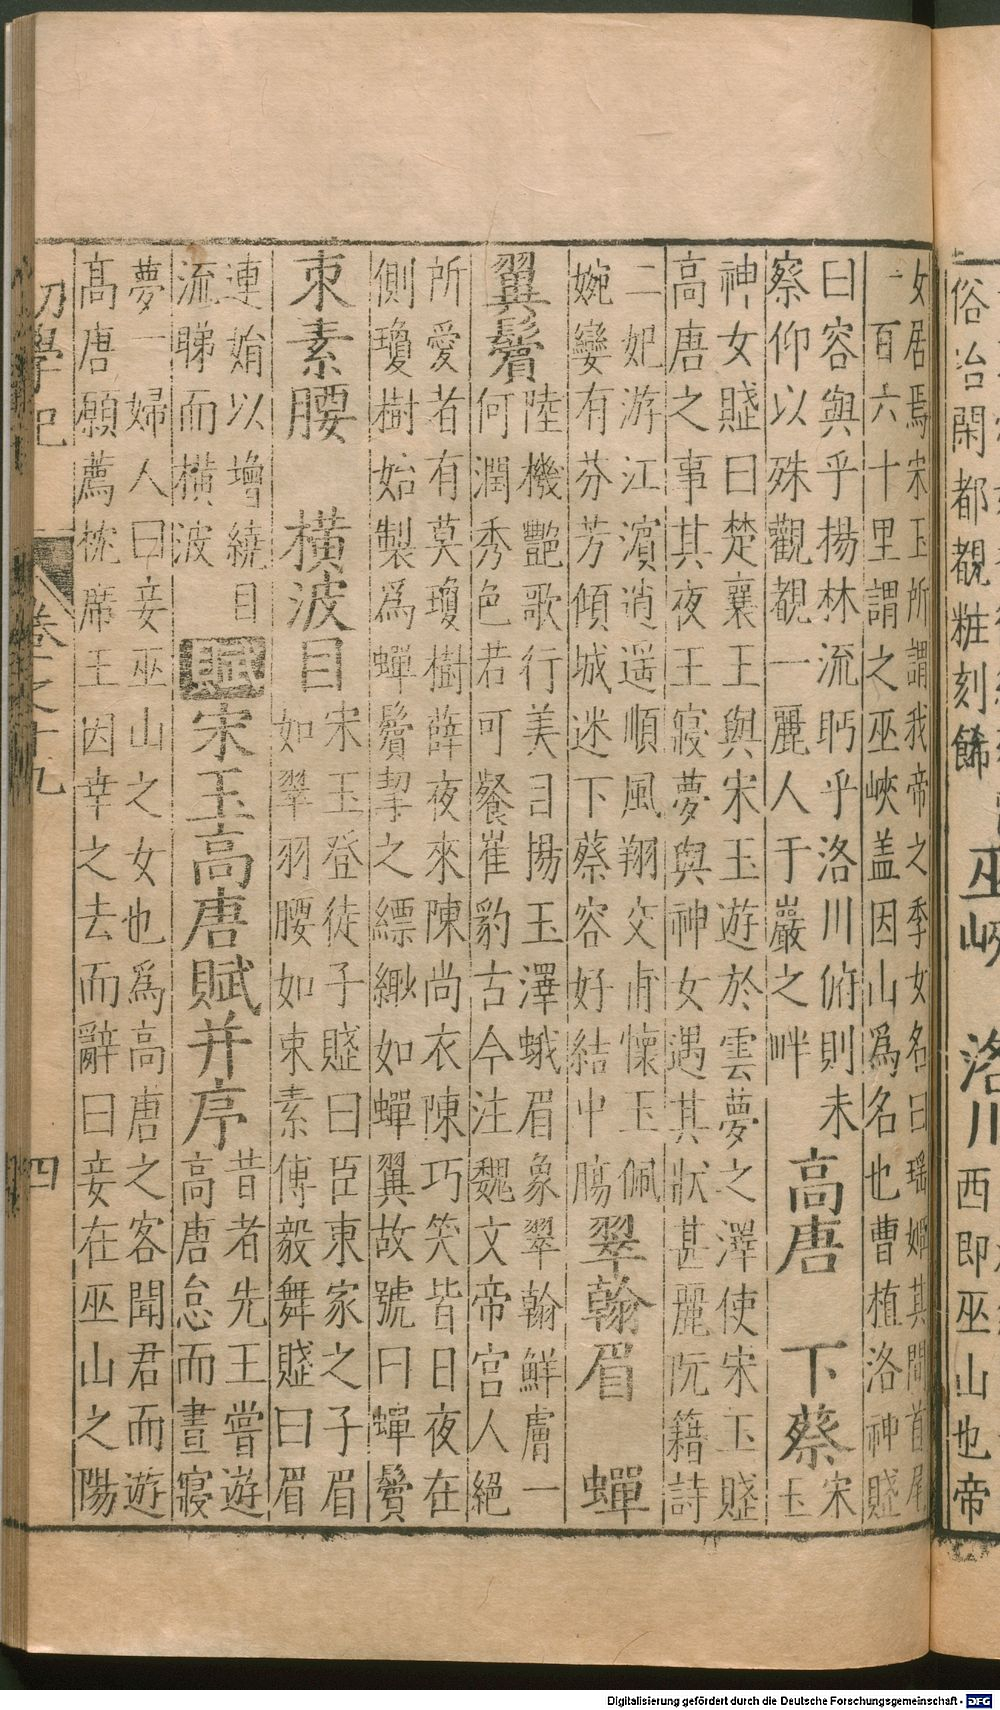 俗冶閑都覩粧刻餙 巫峽 洛川 西即巫山也帝
女居焉宋玉所謂我帝之季女名曰瑶姬其間首尾
一百六十里謂之巫峽盖因山爲名也曹植洛神賦
曰容與乎揚林流眄乎洛川俯則未
察仰以殊觀覩一麗人于巖之畔
高唐 下蔡
宋
玉
神女賦曰楚襄王與宋玉遊於雲夢之澤使宋玉賦
高唐之事其夜王寢夢與神女遇其狀甚麗阮籍詩
二妃游江濵逍遥順風翔交甫懷玉佩
婉孌有芬芳傾城迷下蔡容好結中腸
翠翰眉 蟬
翼鬢
陸機艷歌行美目揚玉澤蛾眉象翠翰鮮膚一
何潤秀色若可餐崔豹古今注魏文帝宮人絕
所愛者有莫瓊樹薛夜來陳尚衣陳巧笑皆日夜在
側瓊樹始製爲蟬鬢挈之縹緲如蟬翼故號曰蟬鬢
束素腰 橫波目
宋玉登徒子賦曰臣東家之子眉
如翠羽腰如束素傅毅舞賦曰眉
連娟以增繞目
流睇而橫波
賦
宋玉高唐賦并序
昔者先王嘗遊
高唐怠而晝寢
夢一婦人曰妾巫山之女也爲高唐之客聞君而遊
高唐願薦枕席王因幸之去而辭曰妾在巫山之陽
初學記 卷之十九 四
Digitalisierung gefördert durch die Deutsche Forschungsgemeinschaft - DFG